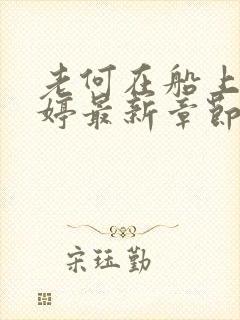 老何在船上
婷最新章节
宋珏勤